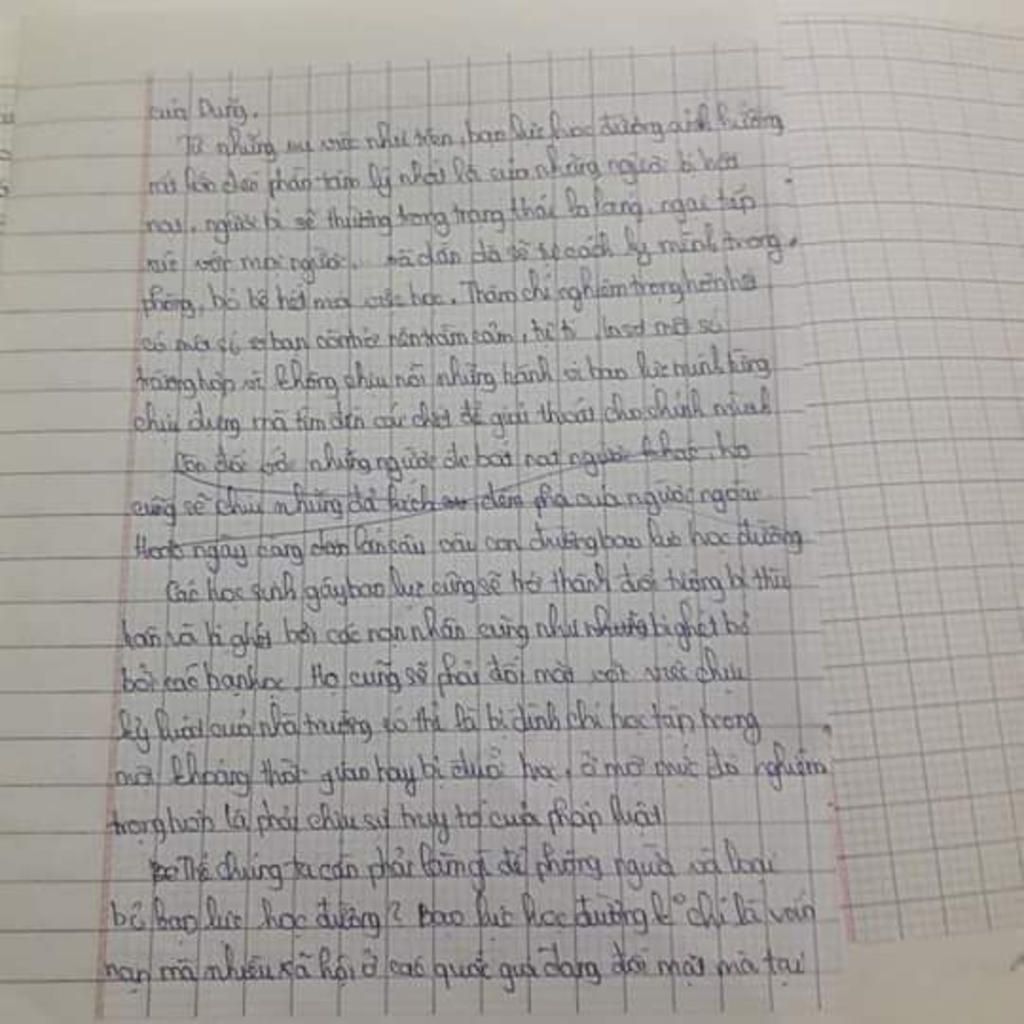 của Dũng.
Từ những vụ việc như trên, bạo lực học đường ảnh hưởng
rất lớn đến phần tâm lý nhất là của những người bị bắt
nạt, người bị sẽ thường trong trạng thái lo lắng, ngại tiếp
xúc với mọi người. và dần dà sẽ tự cách ly mình trong
phòng, bỏ bê hết mọi việc học. Thậm chí nghiêm trọng hơn
có một số bạn còn trầm cảm, tự ti, một số
trường hợp vì không chịu nổi những hành vi bạo lực mình từng
chịu đựng mà tìm đến cái chết để giải thoát cho chính mình
Còn đối với những người đi bắt nạt người khác, họ
cũng sẽ chịu những đả kích, dèm pha của người ngoài
ngày càng dấn lún sâu vào con đường bạo lực học đường
Các học sinh gây bạo lực cũng sẽ trở thành đối tượng bị thù
hằn và bị ghét bởi các nạn nhân cũng như bị ghét bỏ
bởi các bạn học. Họ cũng sẽ phải đối mặt với việc chịu
kỷ luật của nhà trường có thể là bị đình chỉ học tập trong
một khoảng thời gian hay bị đuổi học, ở một mức độ nghiêm
trọng hơn là phải chịu sự truy tố của pháp luật
Thế chúng ta cần phải làm gì để phòng ngừa và loại
bỏ bạo lực học đường? Bạo lực học đường ko chỉ là vấn
nạn mà nhiều xã hội ở các quốc gia đang đối mặt mà tại